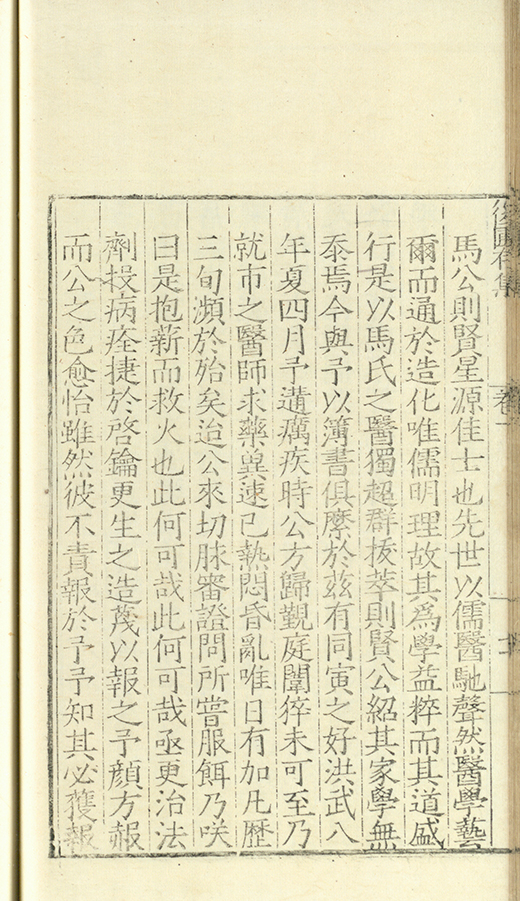 馬公則賢星源佳士也先世以儒醫馳聲然醫學藝
爾而通於造化唯儒明理故其為學益粹而其道盛
行是以馬氏之醫獨超群拔萃則賢公紹其家學無
忝焉今與予以簿書俱摩於茲有同寅之好洪武八
年夏四月予遘癘疾時公方歸覲庭闈猝未可至乃
就市之醫師求藥冀速已熱悶昏亂唯日有加凡歷
三旬瀕於殆矣迨公來切脉審證問所嘗服餌乃咲
曰是抱薪而救火也此何可哉此何可哉亟更治法
劑投病痊捷於啓鑰更生之造蔑以報之予顏方赧
而公之色愈怡雖然彼不責報於予予知其必獲報
卷一